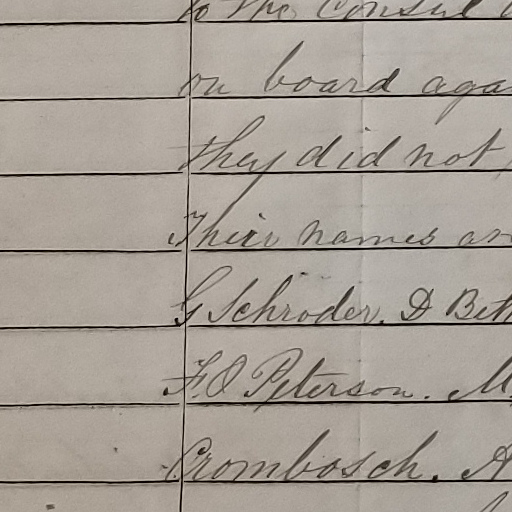 to the Consul
on board aga
they did not
Their names an
G Schroder. D Beth
F. O Peterson. M
Crombosch. A